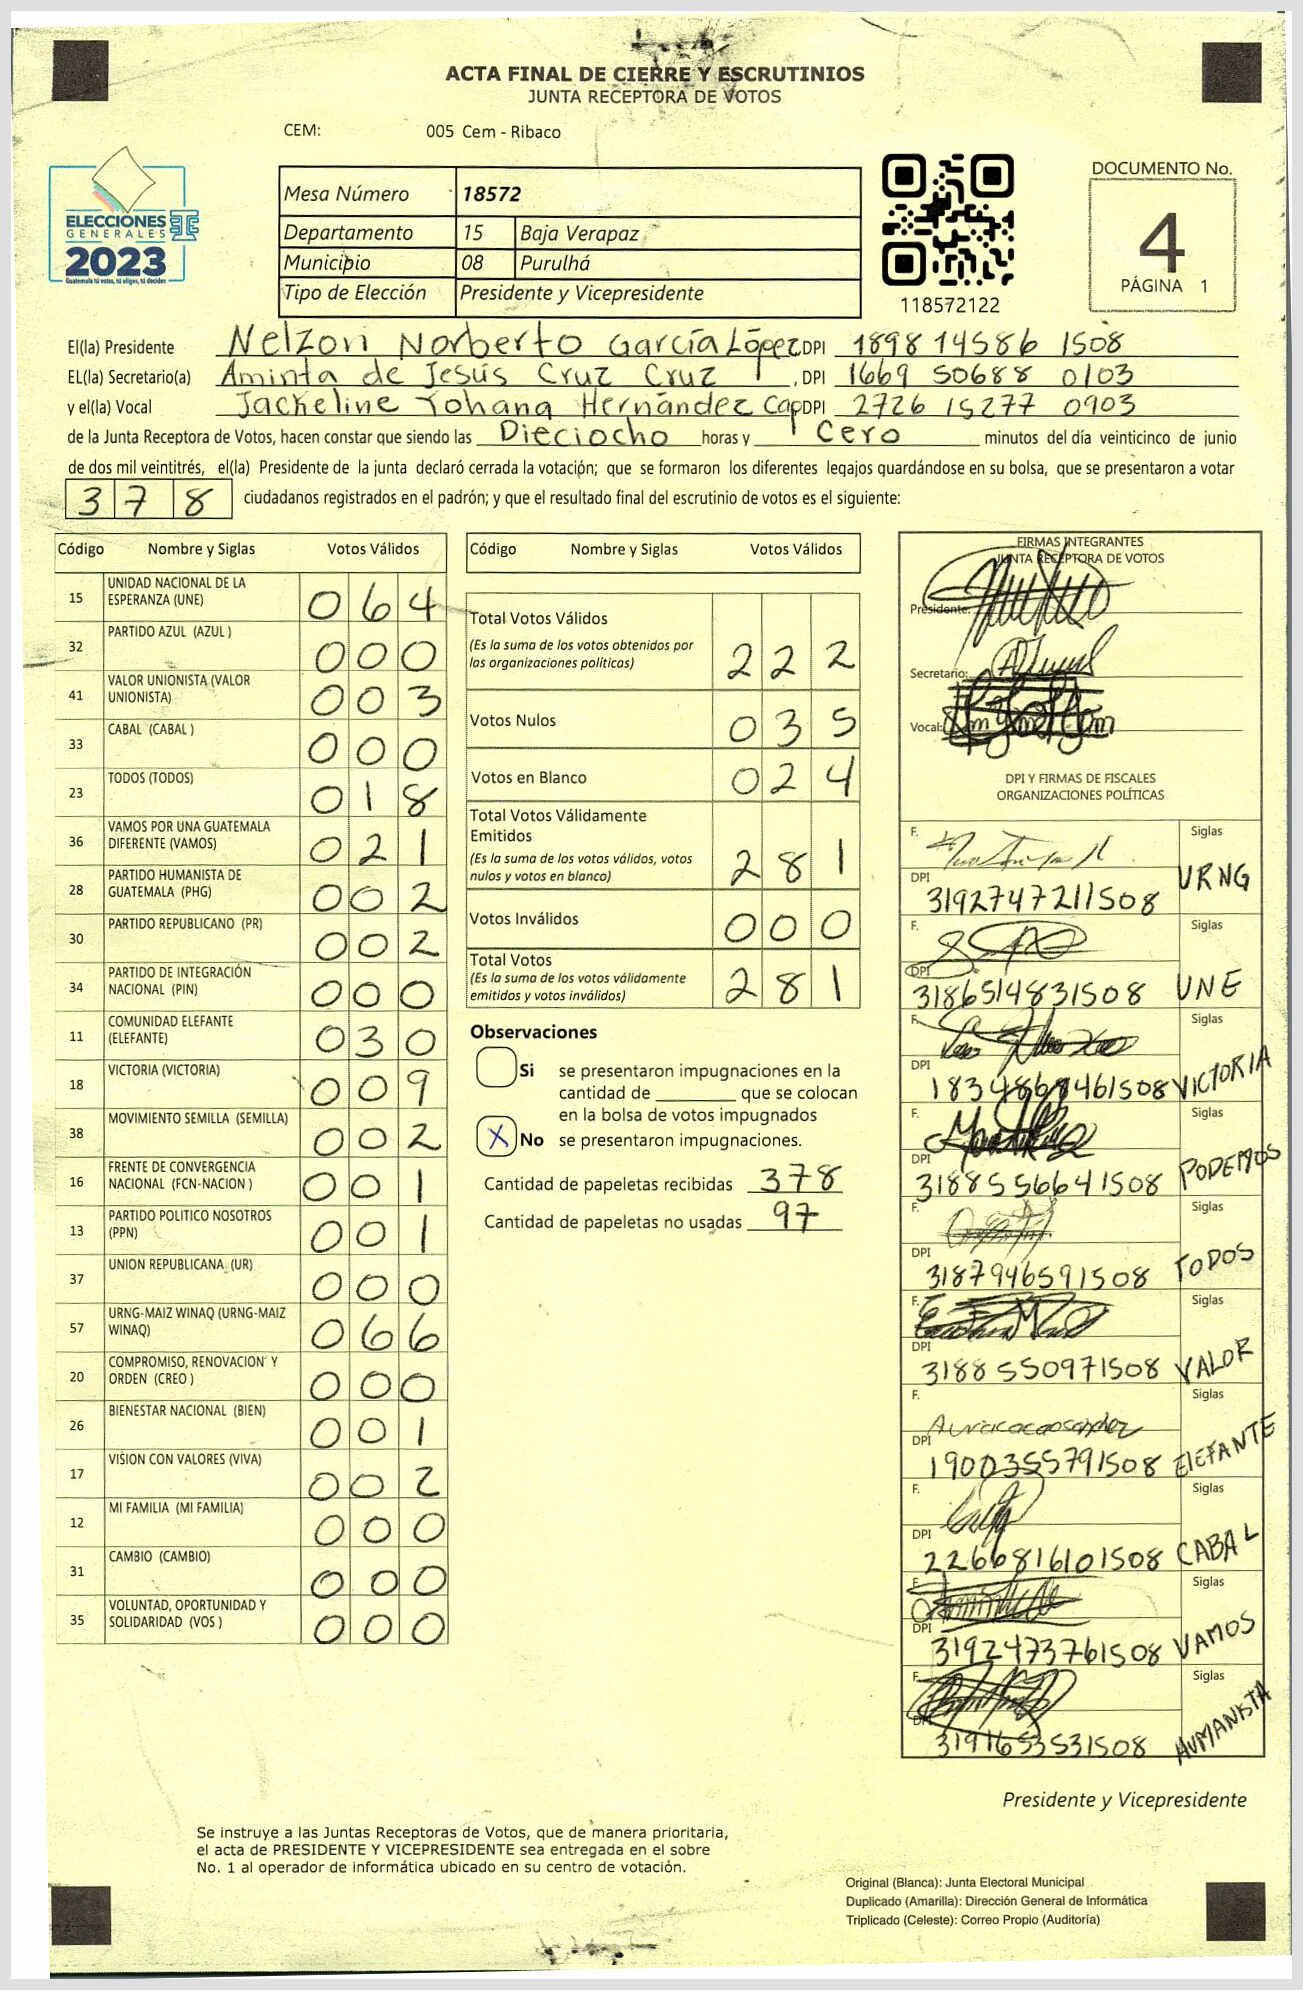 ACTA FINAL DE CIERRE Y ESCRUTINIOS
JUNTA RECEPTORA DE VOTOS
CEM: 005 Cem - Ribaco
ELECCIONES
GENERALES
2023
Guatemala tú votas, tú eliges, tú decides
Mesa Número 18572
Departamento 15 Baja Verapaz
Municipio 08 Purulhá
Tipo de Elección Presidente y Vicepresidente
118572122
DOCUMENTO No.
4
PÁGINA 1
El(la) Presidente Nelzon Norberto García López DPI 1898 14586 1508
EL(la) Secretario(a) Aminta de Jesús Cruz Cruz , DPI 1669 50688 0103
y el(la) Vocal Jackeline Yohana Hernández Cap DPI 2726 15277 0903
de la Junta Receptora de Votos, hacen constar que siendo las Dieciocho horas y Cero minutos del día veinticinco de junio
de dos mil veintitrés, el(la) Presidente de la junta declaró cerrada la votación; que se formaron los diferentes legajos quardándose en su bolsa, que se presentaron a votar
378 ciudadanos registrados en el padrón; y que el resultado final del escrutinio de votos es el siguiente:
Código Nombre y Siglas Votos Válidos
15 UNIDAD NACIONAL DE LA ESPERANZA (UNE) 064
32 PARTIDO AZUL (AZUL ) 000
41 VALOR UNIONISTA (VALOR UNIONISTA) 003
33 CABAL (CABAL ) 000
23 TODOS (TODOS) 018
36 VAMOS POR UNA GUATEMALA DIFERENTE (VAMOS) 021
28 PARTIDO HUMANISTA DE GUATEMALA (PHG) 002
30 PARTIDO REPUBLICANO (PR) 002
34 PARTIDO DE INTEGRACIÓN NACIONAL (PIN) 000
11 COMUNIDAD ELEFANTE (ELEFANTE) 030
18 VICTORIA (VICTORIA) 009
38 MOVIMIENTO SEMILLA (SEMILLA) 002
16 FRENTE DE CONVERGENCIA NACIONAL (FCN-NACION ) 001
13 PARTIDO POLITICO NOSOTROS (PPN) 001
37 UNION REPUBLICANA (UR) 000
57 URNG-MAIZ WINAQ (URNG-MAIZ WINAQ) 066
20 COMPROMISO, RENOVACION Y ORDEN (CREO ) 000
26 BIENESTAR NACIONAL (BIEN) 001
17 VISION CON VALORES (VIVA) 002
12 MI FAMILIA (MI FAMILIA) 000
31 CAMBIO (CAMBIO) 000
35 VOLUNTAD, OPORTUNIDAD Y SOLIDARIDAD (VOS ) 000
Código Nombre y Siglas Votos Válidos
Total Votos Válidos 222
(Es la suma de los votos obtenidos por
las organizaciones políticas)
Votos Nulos 035
Votos en Blanco 024
Total Votos Válidamente
Emitidos 281
(Es la suma de los votos válidos, votos
nulos y votos en blanco)
Votos Inválidos 000
Total Votos 281
(Es la suma de los votos válidamente
emitidos y votos inválidos)
Observaciones
Si se presentaron impugnaciones en la
cantidad de ________ que se colocan
en la bolsa de votos impugnados
X No se presentaron impugnaciones.
Cantidad de papeletas recibidas 378
Cantidad de papeletas no usadas 97
FIRMAS INTEGRANTES
JUNTA RECEPTORA DE VOTOS
Presidente:
Secretario:
Vocal:
DPI Y FIRMAS DE FISCALES
ORGANIZACIONES POLÍTICAS
F. Siglas
DPI 3192747211508 URNG
F. Siglas
DPI 3186514831508 UNE
F. Siglas
DPI 1834868461508 VICTORIA
F. Siglas
DPI 3188556641508 PODEMOS
F. Siglas
DPI 3187946591508 TODOS
F. Siglas
DPI 3188550971508 VALOR
F. Siglas
DPI 1900355791508 ElEFANTE
F. Siglas
DPI 2266816101508 CABAL
F. Siglas
DPI 3192473761508 VAMOS
F. Siglas
DPI 3191653531508 HUMANISTA
Presidente y Vicepresidente
Se instruye a las Juntas Receptoras de Votos, que de manera prioritaria,
el acta de PRESIDENTE Y VICEPRESIDENTE sea entregada en el sobre
No. 1 al operador de informática ubicado en su centro de votación.
Original (Blanca): Junta Electoral Municipal
Duplicado (Amarilla): Dirección General de Informática
Triplicado (Celeste): Correo Propio (Auditoría)